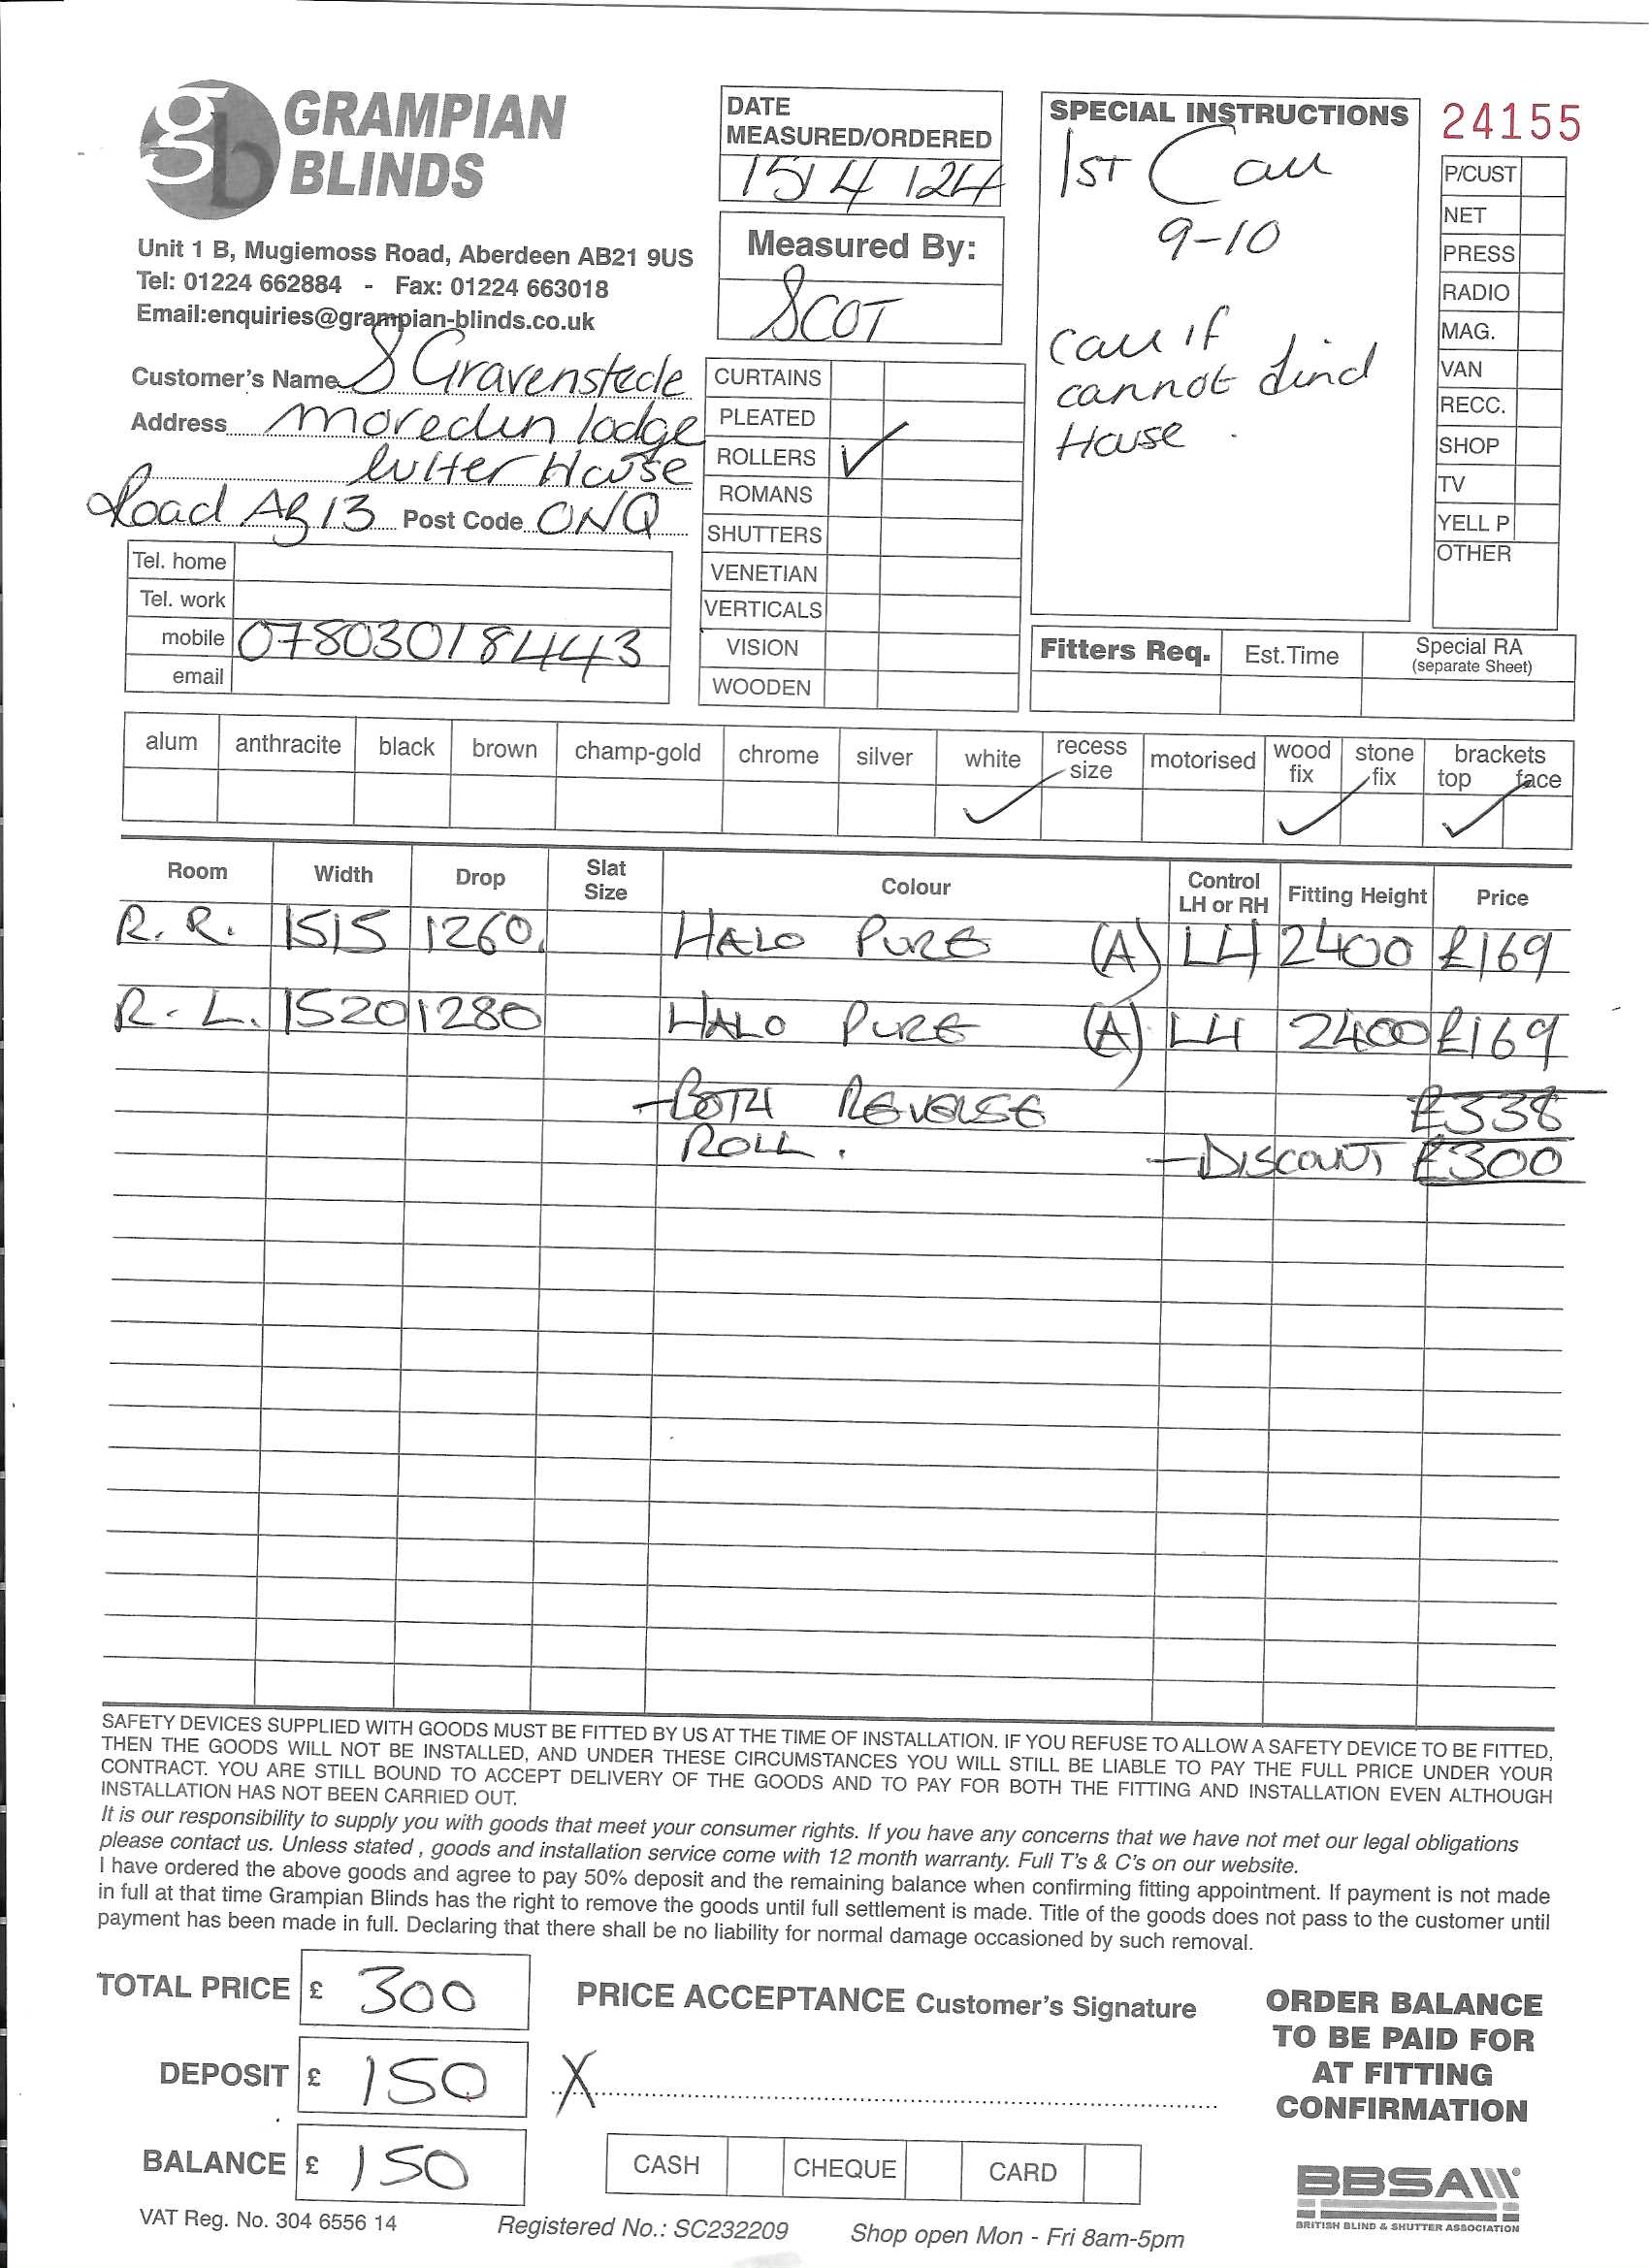 GRAMPIAN
BLINDS
Unit 1 B, Mugiemoss Road, Aberdeen AB21 9US
Tel: 01224 662884 - Fax: 01224 663018
Email:enquiries@grampian-blinds.co.uk
DATE
MEASURED/ORDERED
15/4/24
Measured By:
SCOT
SPECIAL INSTRUCTIONS
1ST Call
9-10
call if
cannot find
House.
24155
P/CUST
NET
PRESS
RADIO
MAG.
VAN
RECC.
SHOP
TV
YELL P
OTHER
Customer's Name S Gravenstede
Address moredun lodge
House
Road AB13 Post Code 0NQ
Tel. home
Tel. work
mobile 07803018443
email
CURTAINS
PLEATED
ROLLERS ✓
ROMANS
SHUTTERS
VENETIAN
VERTICALS
VISION
WOODEN
Fitters Req. Est.Time Special RA
(separate Sheet)
alum anthracite black brown champ-gold chrome silver white recess size motorised wood fix stone fix brackets top face
✓ ✓ ✓
Room Width Drop Slat Size Colour Control LH or RH Fitting Height Price
R.R. 1515 1260 HALO PURE (A) LH 2400 £169
R.L. 1520 1280 HALO PURE (A) LH 2400 £169
-BOTH REVERSE £338
ROLL. -DISCOUNT £300
SAFETY DEVICES SUPPLIED WITH GOODS MUST BE FITTED BY US AT THE TIME OF INSTALLATION. IF YOU REFUSE TO ALLOW A SAFETY DEVICE TO BE FITTED,
THEN THE GOODS WILL NOT BE INSTALLED, AND UNDER THESE CIRCUMSTANCES YOU WILL STILL BE LIABLE TO PAY THE FULL PRICE UNDER YOUR
CONTRACT. YOU ARE STILL BOUND TO ACCEPT DELIVERY OF THE GOODS AND TO PAY FOR BOTH THE FITTING AND INSTALLATION EVEN ALTHOUGH
INSTALLATION HAS NOT BEEN CARRIED OUT.
It is our responsibility to supply you with goods that meet your consumer rights. If you have any concerns that we have not met our legal obligations
please contact us. Unless stated , goods and installation service come with 12 month warranty. Full T's & C's on our website.
I have ordered the above goods and agree to pay 50% deposit and the remaining balance when confirming fitting appointment. If payment is not made
in full at that time Grampian Blinds has the right to remove the goods until full settlement is made. Title of the goods does not pass to the customer until
payment has been made in full. Declaring that there shall be no liability for normal damage occasioned by such removal.
TOTAL PRICE £ 300
PRICE ACCEPTANCE Customer's Signature
DEPOSIT £ 150
X
BALANCE £ 150
CASH CHEQUE CARD
ORDER BALANCE
TO BE PAID FOR
AT FITTING
CONFIRMATION
BBSA
BRITISH BLIND & SHUTTER ASSOCIATION
VAT Reg. No. 304 6556 14 Registered No.: SC232209 Shop open Mon - Fri 8am-5pm